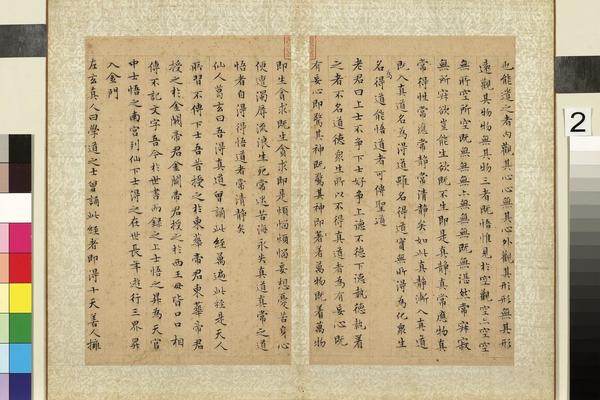 也能遣之者內觀其心心無其心外觀其形形無其形
遠觀其物物無其物三者既悟惟見於空觀空亦空空
無所空所空既無無無亦無無無既無湛然常寂寂
無所寂欲豈能生欲既不生即是真靜真常應物真
常得性常應常靜常清靜矣如此真靜漸入真道
既入真道名為得道雖名得道實無所得為化衆生
名為得道能悟道者可傳聖道
老君曰上士不爭下士好爭上德不德下德執德執着
之者不名道德衆生所以不得真道者為有妄心既
有妄心即驚其神既驚其神即著萬物既着萬物
即生貪求既生貪求即是煩惱煩惱妄想憂苦身心
便遭濁辱流浪生死常迷苦海永失真道真常之道
悟者自得得悟道者常清靜矣
仙人葛玄曰吾得真道曾誦此經萬遍此經是天人
所習不傳下士吾昔授之於東華帝君東華帝君
授之於金闕帝君金闕帝君授之於西王母皆口口相
傳不記文字吾今於世書而録之上士悟之昇為天官
中士悟之南宮列仙下士得之在世長年遊行三界昇
入金門
左玄真人曰學道之士曾誦此經者即得十天善人擁
2